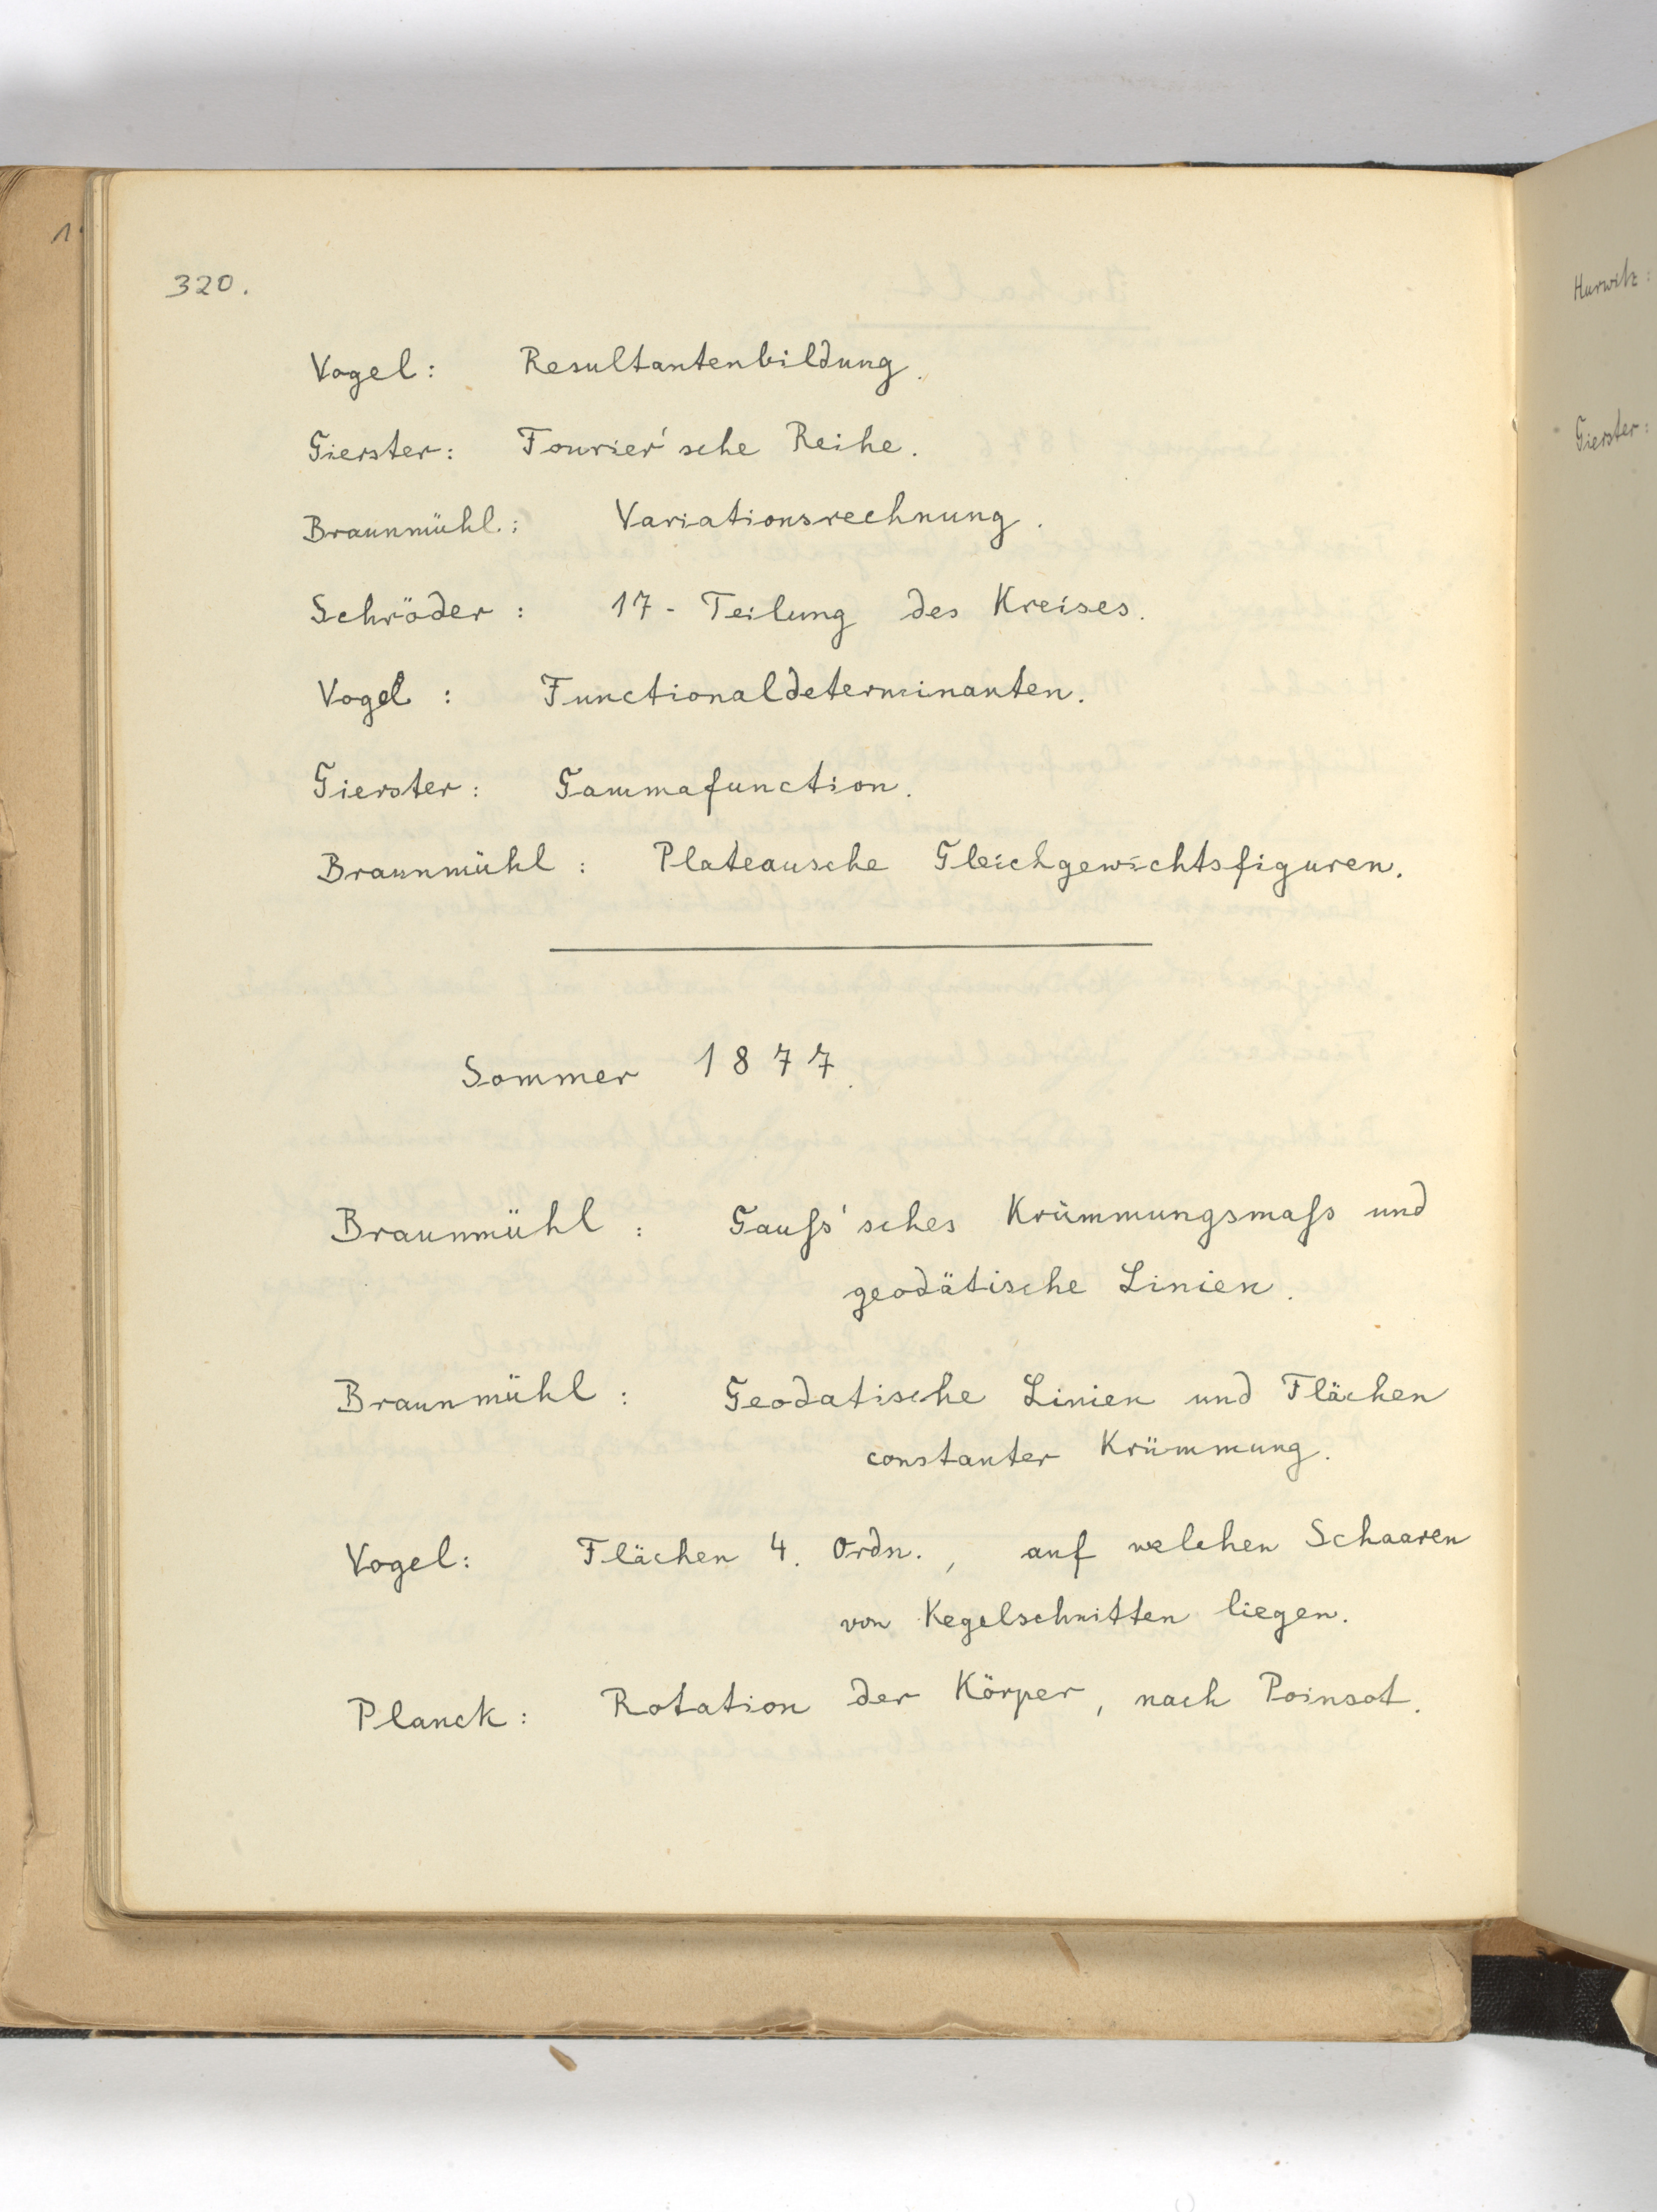 320.
Vogel: Resultantenbildung.
Gierster: Fourier'sche Reihe.
Braunmühl.: Variationsrechnung.
Schröder: 17-Teilung des Kreises.
Vogel: Functionaldeterminanten.
Gierster: Gammafunction.
Braunmühl: Plateausche Gleichgewichtsfiguren.
Sommer 1877.
Braunmühl: Gauſs'sches Krümmungsmaſs und
geodätische Linien.
Braunmühl: Geodatische Linien und Flächen
constanter Krümmung.
Vogel: Flächen 4. Ordn., auf welchen Schaaren
von Kegelschnitten liegen.
Planck: Rotation der Körper, nach Poinsot.
Hurwitz:
Gierster: